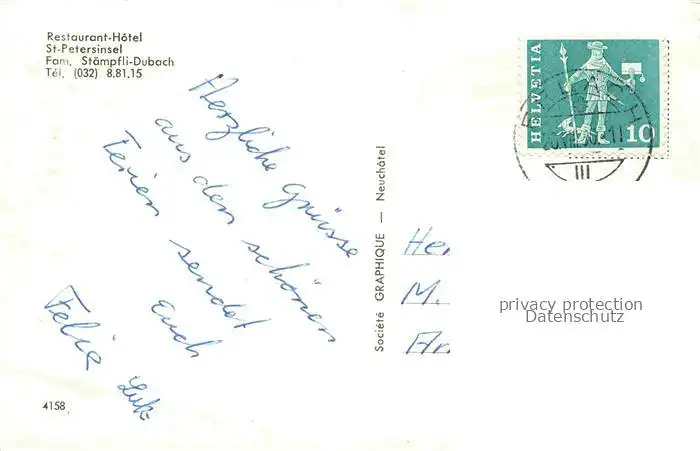 Restaurant-Hôtel
St-Petersinsel
Fam. Stämpfli-Dubach
Tél. (032) 8.81.15
Herzliche Grüsse
aus den schönen
Ferien sendet
Euch
Felix
4158
Société GRAPHIQUE — Neuchâtel
HELVETIA
10
III
Her
M.
privacy protection
Datenschutz